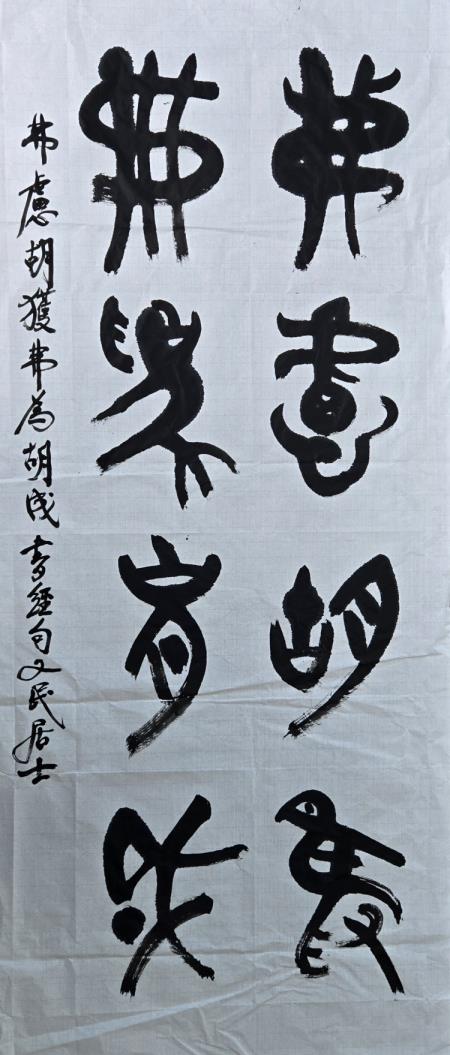 弗慮胡獲
弗為胡成
弗慮胡獲弗為胡成 書經句 又民居士